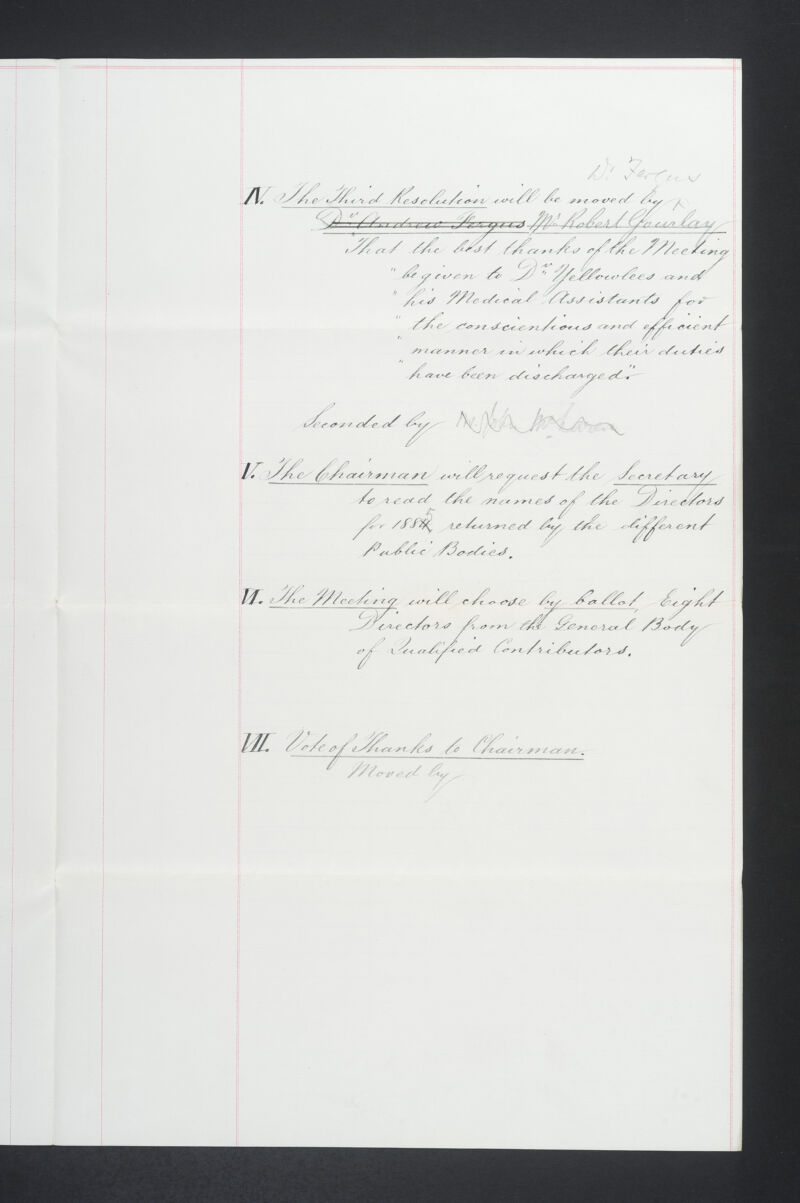 Dr. Fergus
IV. The Third Resolution will be moved by
Dr. Andrew Fergus Mr. Robert Gourlay
"That the best thanks of the Meeting
" be given to Dr. Yellowlees and
" his Medical Assistants for
" the conscientious and efficient
" manner in which their duties
" have been discharged".
Seconded by
V. The Chairman will request the Secretary
to read the names of the Directors
for 1885 returned by the different
Public Bodies.
VI. The Meeting will choose by ballot, Eight
Directors from the General Body
of Qualified Contributors.
VII. Vote of Thanks to Chairman.
Moved by